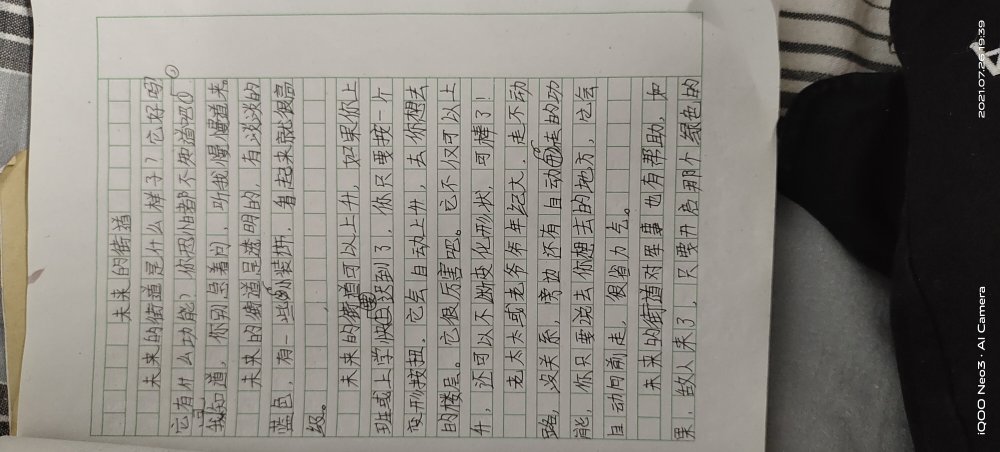 未来的街道
未来的街道是什么样子？它好吗？
它有什么功能？你恐怕都不知道吧①
我知道，你别急着问，听我慢慢道来。
未来的街道是透明的，有淡淡的
蓝色，有一些的装饰，看起来就很高
级。
未来的街道可以上升，如果你上
班或上学快迟到了，你只要按一个
变形按扭，它会自动上升，去你想去
的楼层。它很厉害吧。它不仅可以上
升，还可以不断变化形状，可棒了！
老太太或老爷爷年纪大，走不动
路，没关系，旁边还有自动走的功
能，你只要说去你想去的地方，它会
自动向前走，很省力气。
未来的街道对军事也有帮助，如
果，敌人来了，只要开启那个绿色的
2021.07.26 19:39
iQOO Neo3 · AI Camera